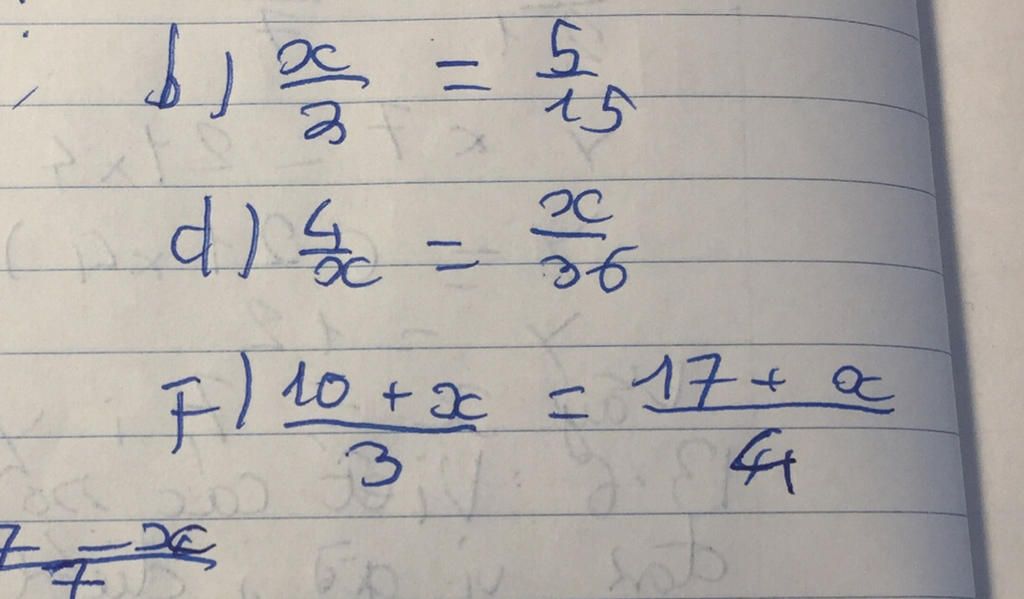 b) x/3 = 5/15
d) 4/x = x/36
F) (10 + x)/3 = (17 + x)/4
- x
7